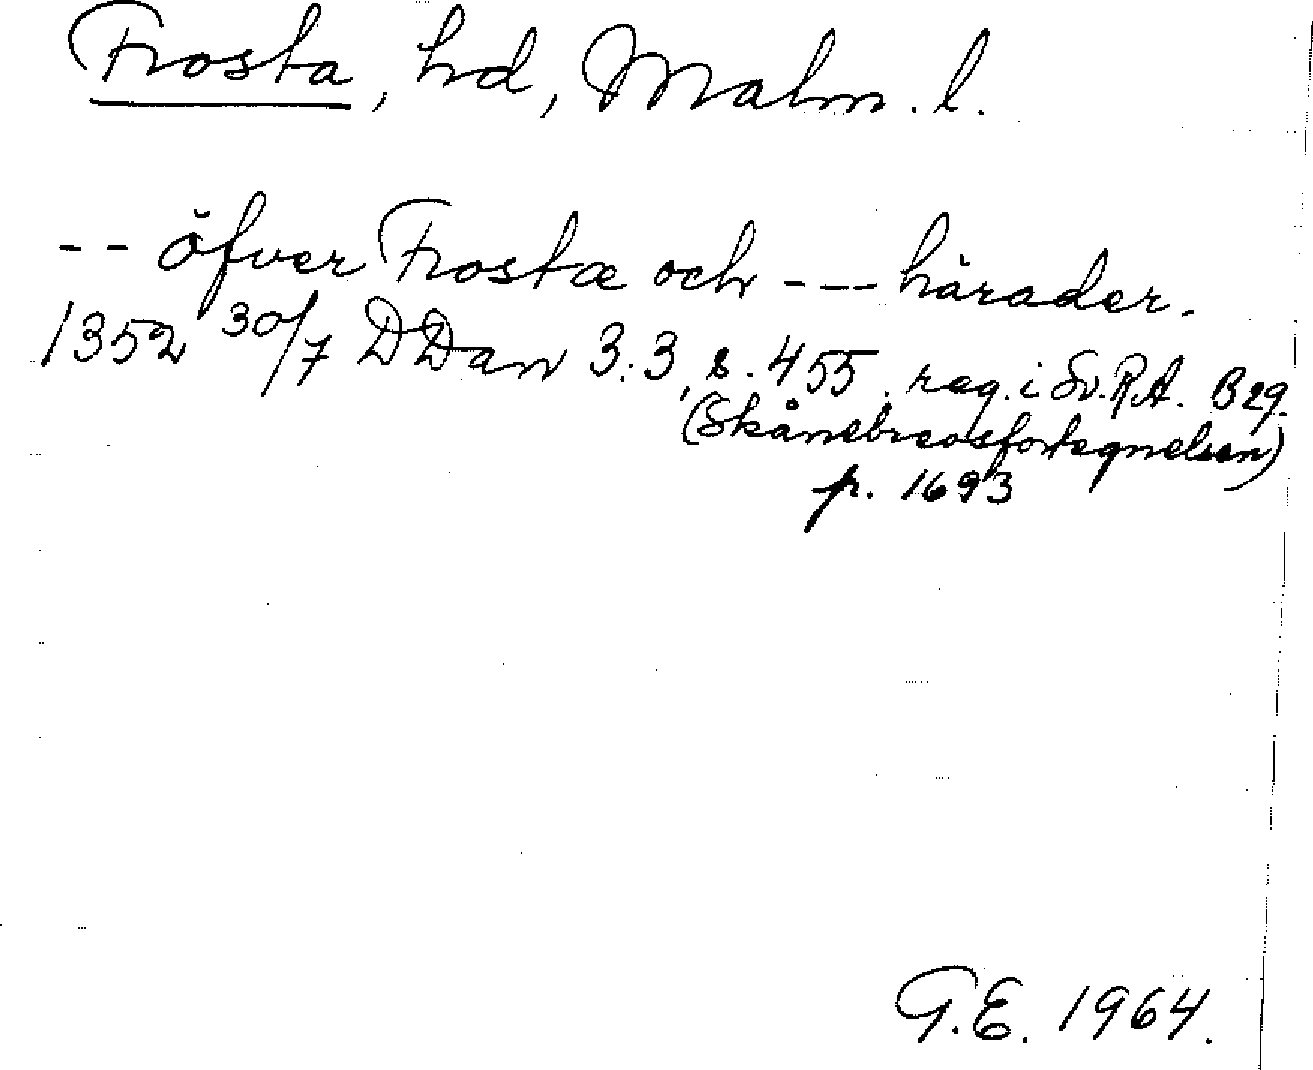 Frosta, hd, Malm. l.
-- öfver Frostæ och --- härader.
1352 30/7 DDan 3:3, s. 455. reg. i Sv. R.A. B 29.
(Skånebrevsfortegnelsen)
p. 1693
G.E. 1964.